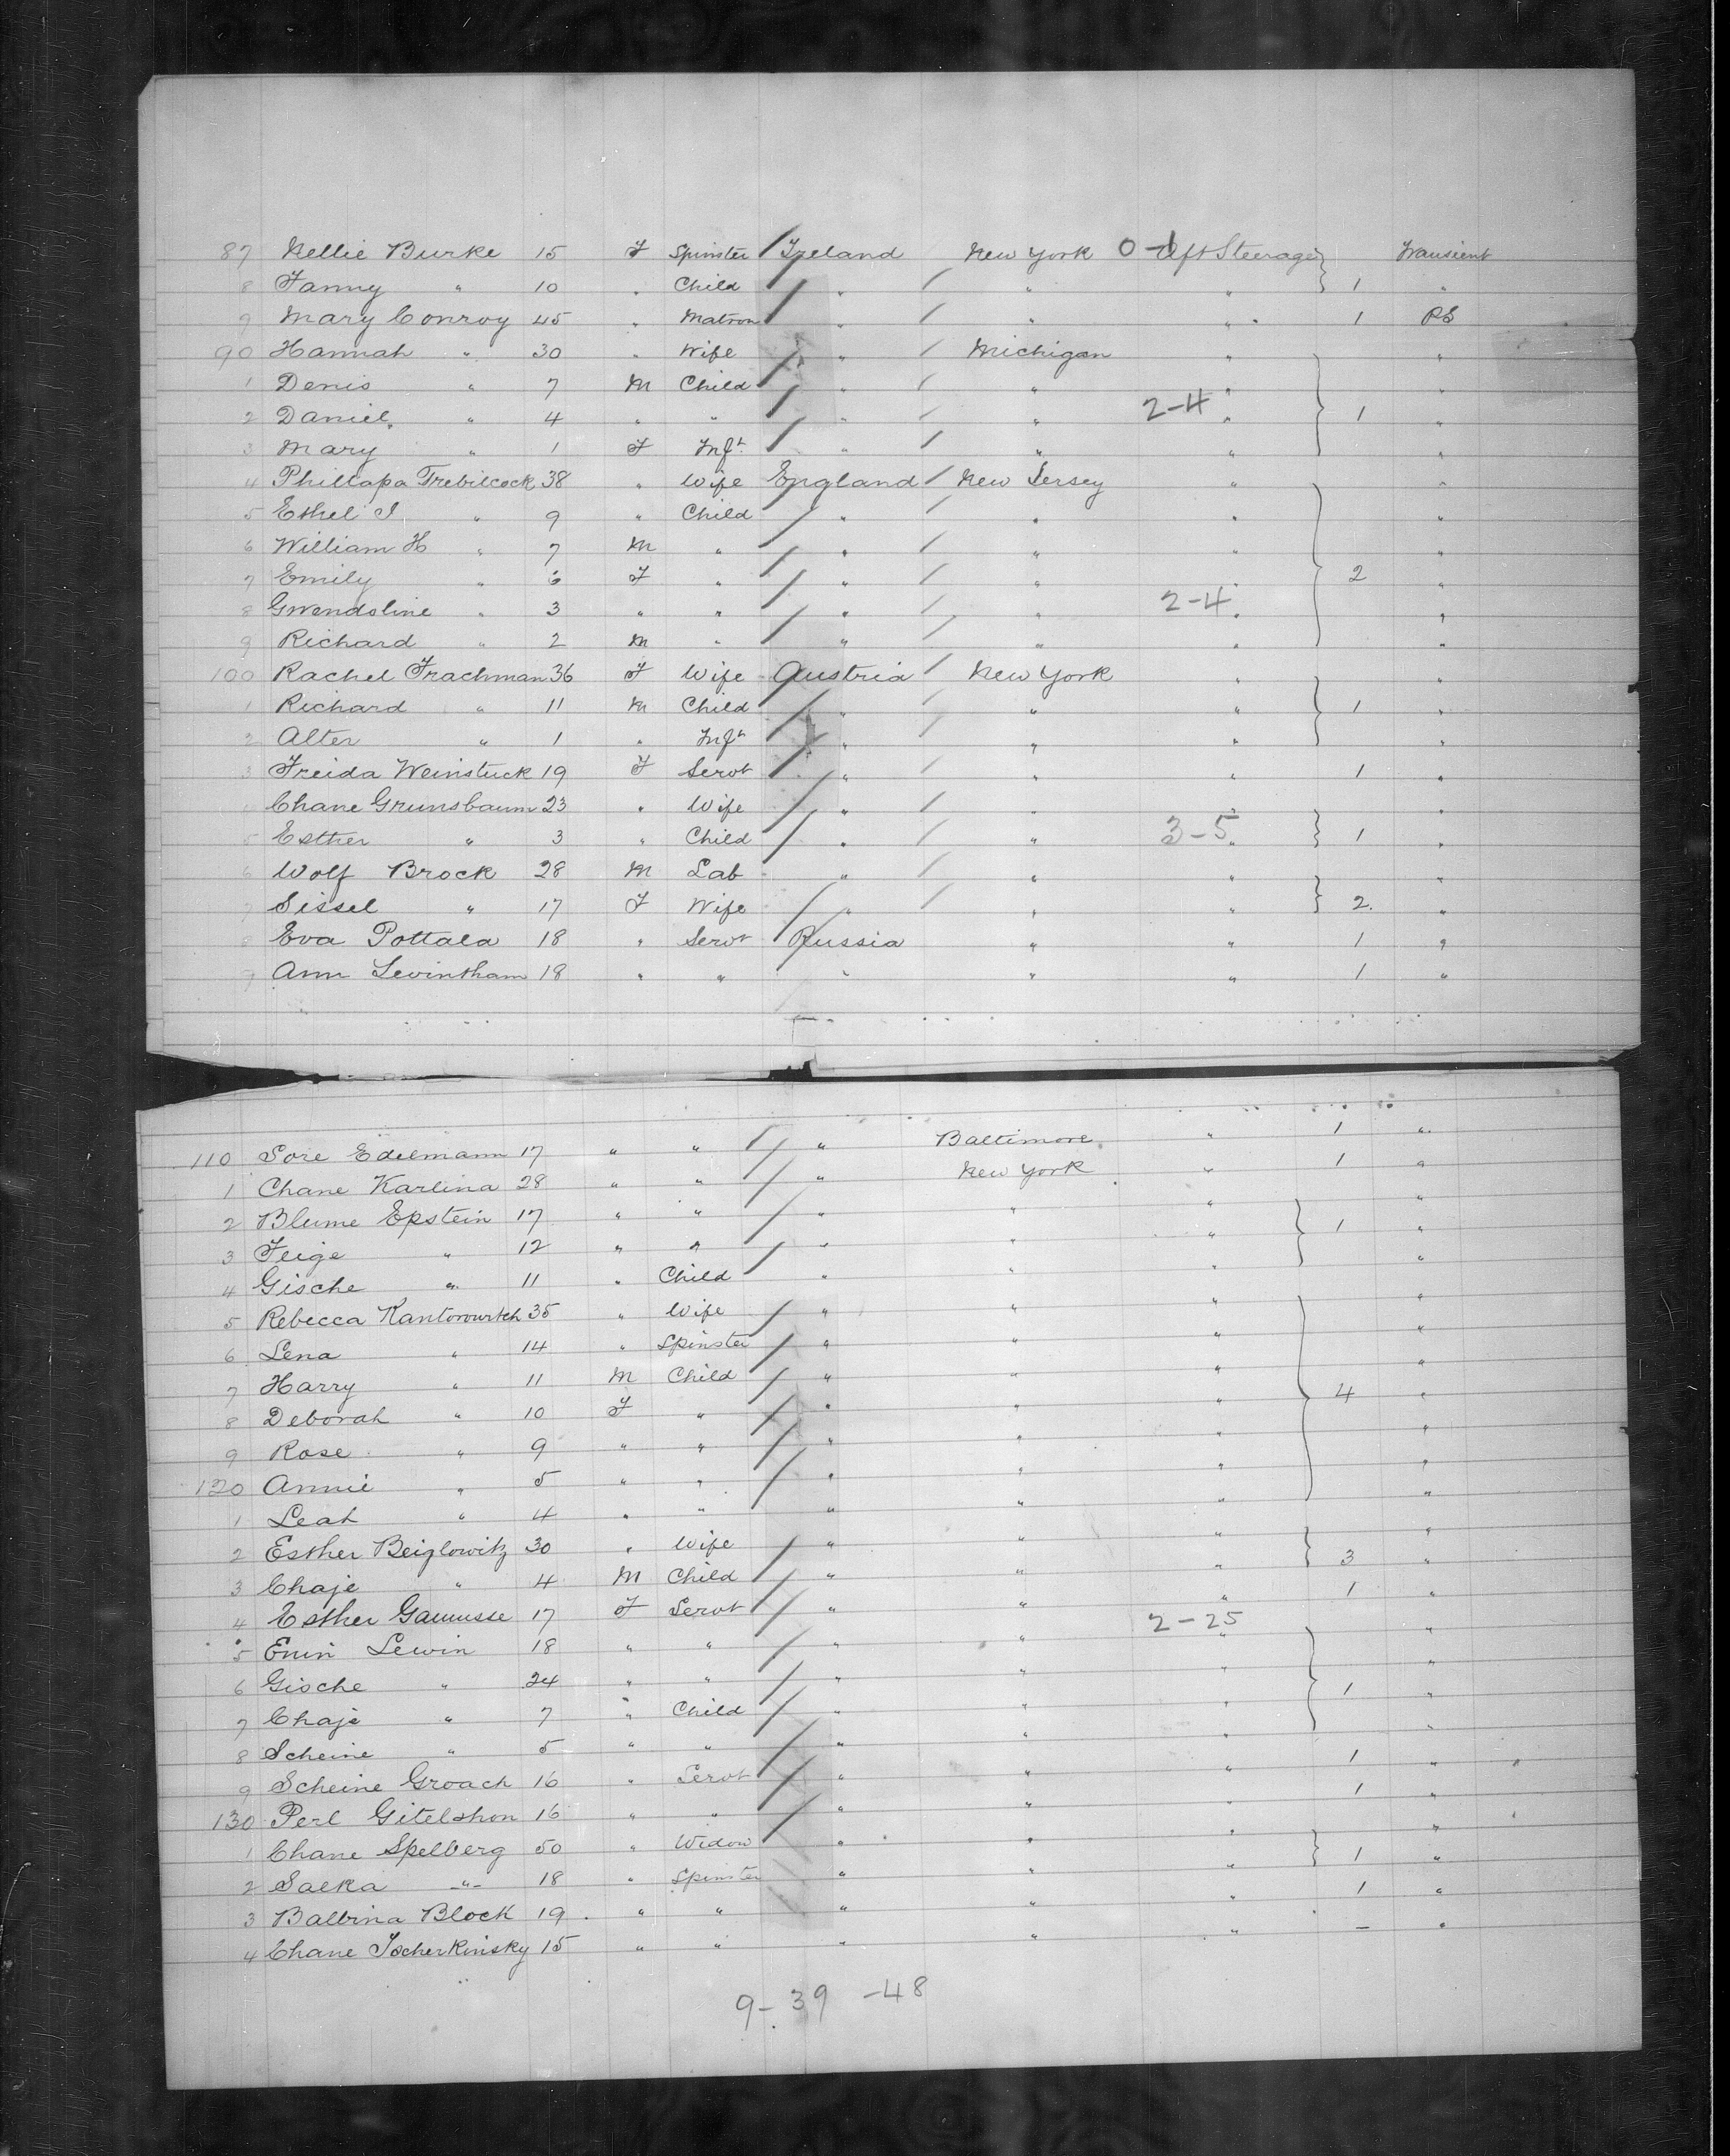 87 Nellie Burke 15 F Spinster Ireland New York 0-1 Aft Steerage Transient
8 Fanny " 10 " Child " " " 1 "
9 Mary Conroy 45 " Matron " " " 1 PS
90 Hannah " 30 " Wife " Michigan " "
1 Denis " 7 M Child " " " "
2 Daniel " 4 " " " " 2-4 " 1 "
3 Mary " 1 F Inft " " " "
4 Phillapa Trebilcock 38 " Wife England New Jersey " "
5 Ethel J " 9 " Child " " " "
6 William H " 7 M " " " " "
7 Emily " 6 F " " " " 2 "
8 Gwendoline " 3 " " " " 2-4 " "
9 Richard " 2 M " " " " "
100 Rachel Trachman 36 F Wife Austria New York " "
1 Richard " 11 M Child " " " 1 "
2 Alter " 1 " Inft " " " "
3 Freida Weinstuck 19 F Servt " " " 1 "
4 Chane Grunsbaum 23 " Wife " " " "
5 Esther " 3 " Child " " 3-5 " 1 "
6 Wolf Brock 28 M Lab " " " "
7 Sissel " 17 F Wife " " " 2 "
8 Eva Pottala 18 " Servt Russia " " 1 "
9 Ann Levintham 18 " " " " " 1 "
110 Sore Edelmann 17 " " " Baltimore " 1 "
1 Chane Karlina 28 " " " New York " 1 "
2 Blume Epstein 17 " " " " " "
3 Feige " 12 " " " " " 1 "
4 Gische " 11 " Child " " " "
5 Rebecca Kantorowitch 35 " Wife " " " "
6 Lena " 14 " Spinster " " " "
7 Harry " 11 M Child " " " "
8 Deborah " 10 F " " " " 4 "
9 Rose " 9 " " " " " "
120 Annie " 5 " " " " " "
1 Leah " 4 " " " " " "
2 Esther Beiglowitz 30 " Wife " " " "
3 Chaje " 4 M Child " " " 3 "
4 Esther Gamusse 17 F Servt " " " 1 "
5 Enin Lewin 18 " " " " 2-25 " "
6 Gische " 24 " " " " " "
7 Chaje " 7 " Child " " " 1 "
8 Scheine " 5 " " " " " "
9 Scheine Groach 16 " Servt " " " 1 "
130 Perl Gitelshon 16 " " " " " 1 "
1 Chane Spelberg 50 " Widow " " " "
2 Salka " 18 " Spinster " " " 1 "
3 Balbina Block 19 " " " " " 1 "
4 Chane Tscherkinsky 15 " " " " " – "
9-39 -48